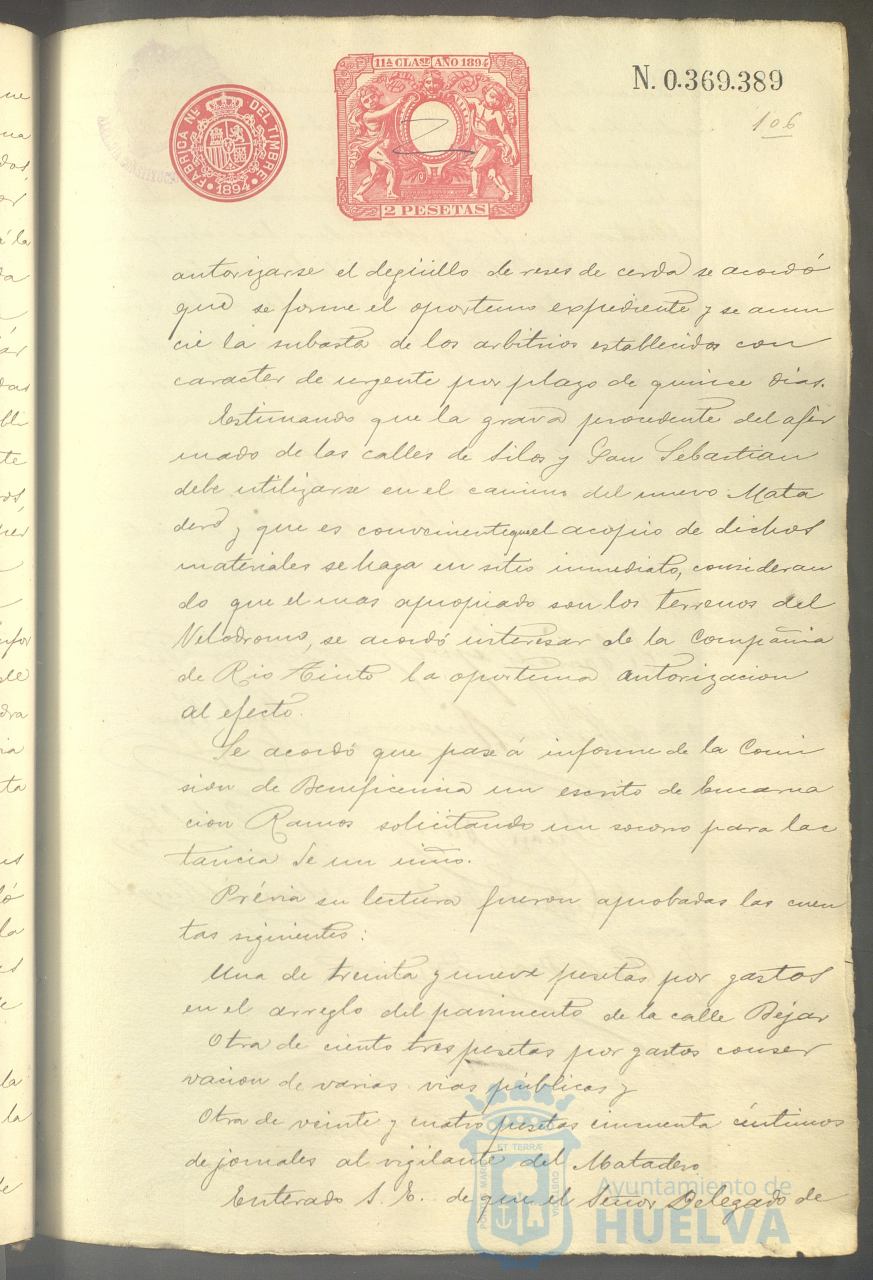 FABRICA NAL DEL TIMBRE
1894
11ª CLASE AÑO 1894
2 PESETAS
N. 0.369.389
106
autorizarse el degüello de reses de cerda se acordó
que se forme el oportuno expediente y se anun
cie la subasta de los arbitrios establecidos con
caracter de urgente por plazo de quince dias.
Estimando que la grava procedente del afir
mado de las calles de Silos y San Sebastian
debe utilizarse en el camino del nuevo Mata
dero y que es conveniente que el acopio de dichos
materiales se haga en sitio inmediato, consideran
do que el mas apropiado son los terrenos del
Velodromo, se acordó interesar de la Compañia
de Rio Tinto la oportuna autorizacion
al efecto.
Se acordó que pase á informe de la Comi
sion de Beneficencia un escrito de Encarna
cion Ramos solicitando un socorro para lac
tancia de un niño.
Prévia su lectura fueron aprobadas las cuen
tas siguientes:
Una de treinta y nueve pesetas por gastos
en el arreglo del pavimento de la calle Béjar
Otra de ciento tres pesetas por gastos conser
vacion de varias vias públicas y
Otra de veinte y cuatro pesetas cincuenta céntimos
de jornales al vigilante del Matadero
Enterado S. E. de que el Señor Delegado de
Ayuntamiento de
HUELVA